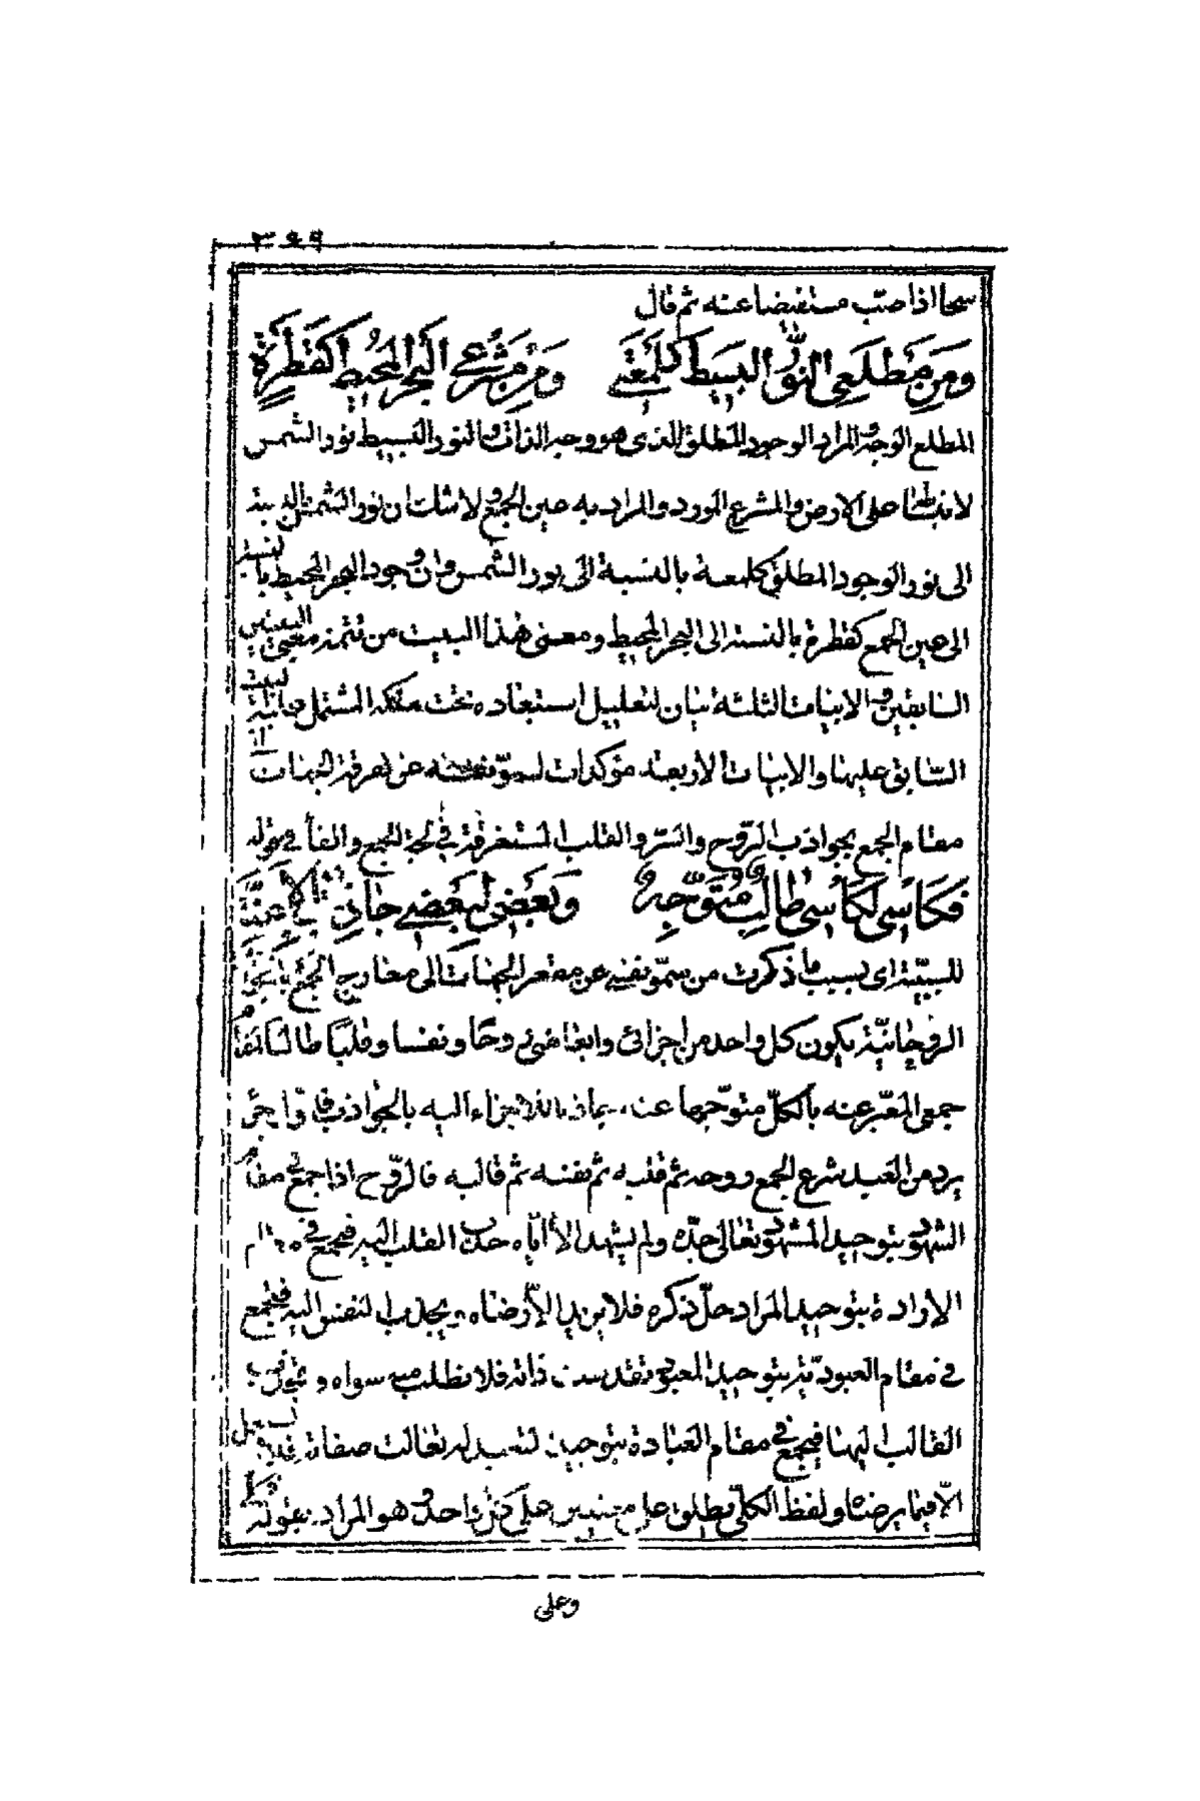 ٣٩٩
سحا اذا صبّ مستفيضا عنه ثم قال
ومن مطلعي النور البسيط كلمعة ومن مشرعي البحر المحيط كقطرة
المطلع الوجه والمراد الوجود المطلق الذى هو وجه الذات والنور البسيط نور الشمس
لانبساطه على الارض والمشرع المورد والمراد به عين الجمع ولا شك ان نور الشمس بالنسبة
الى نور الوجود المطلق كلمعة بالنسبة الى نور الشمس وان وجود البحر المحيط بالنسبة
الى عين الجمع كقطرة بالنسبة الى البحر المحيط ومعنى هذا البيت من تتمة معنى البيتين
السابقين والابيات الثلثة بيان لتعليل استبعاده تحت ملكه المشتمل البيت
السابق عليها والابيات الاربعة مؤكدات لسمو نفسه عن تفرقة الجهات
مقام الجمع بجواذب الروح والسرّ والقلب المستغرقة في لجة الجمع والفاء في قوله
فكلّي لكلّي طالب متوجه وبعضي لبعضي جاذب بالاعنّة
للسببيّة اى بسبب ما ذكرت من سموّ نفسه عن مقعر الجهات الى معارج الجمع
الروحانيّة يكون كل واحد من اجزائى وابعاضى روحا ونفسا وقلبا طالبا
جمعى المعبّر عنه بالكلّ متوجّها عنده بجاذب الاجزاء اليه بالجواذب
يرد من العبد شرع الجمع روحه ثم قلبه ثم نفسه ثم قالبه فالروح اذا جمع في مقام
الشهود بتوحيد المشهود تعالى جدّه ولم يشهد الا ايّاه جذب القلب اليه فيجمع في مقام
الارادة بتوحيد المراد جلّ ذكره فلا يريد الّا رضاه ويجذب النفس اليه فيجمع
في مقام العبوديّة بتوحيد المعبود تقدست ذاته فلا تطلب سواه
القالب اليها فيجمع في مقام العبادة بتوحيد تعالت صفاته فلا يعمل
الّا فيما يرضاه ولفظ الكلّى يطلق على معنيين على كل واحد وهو المراد بقوله
وعلى